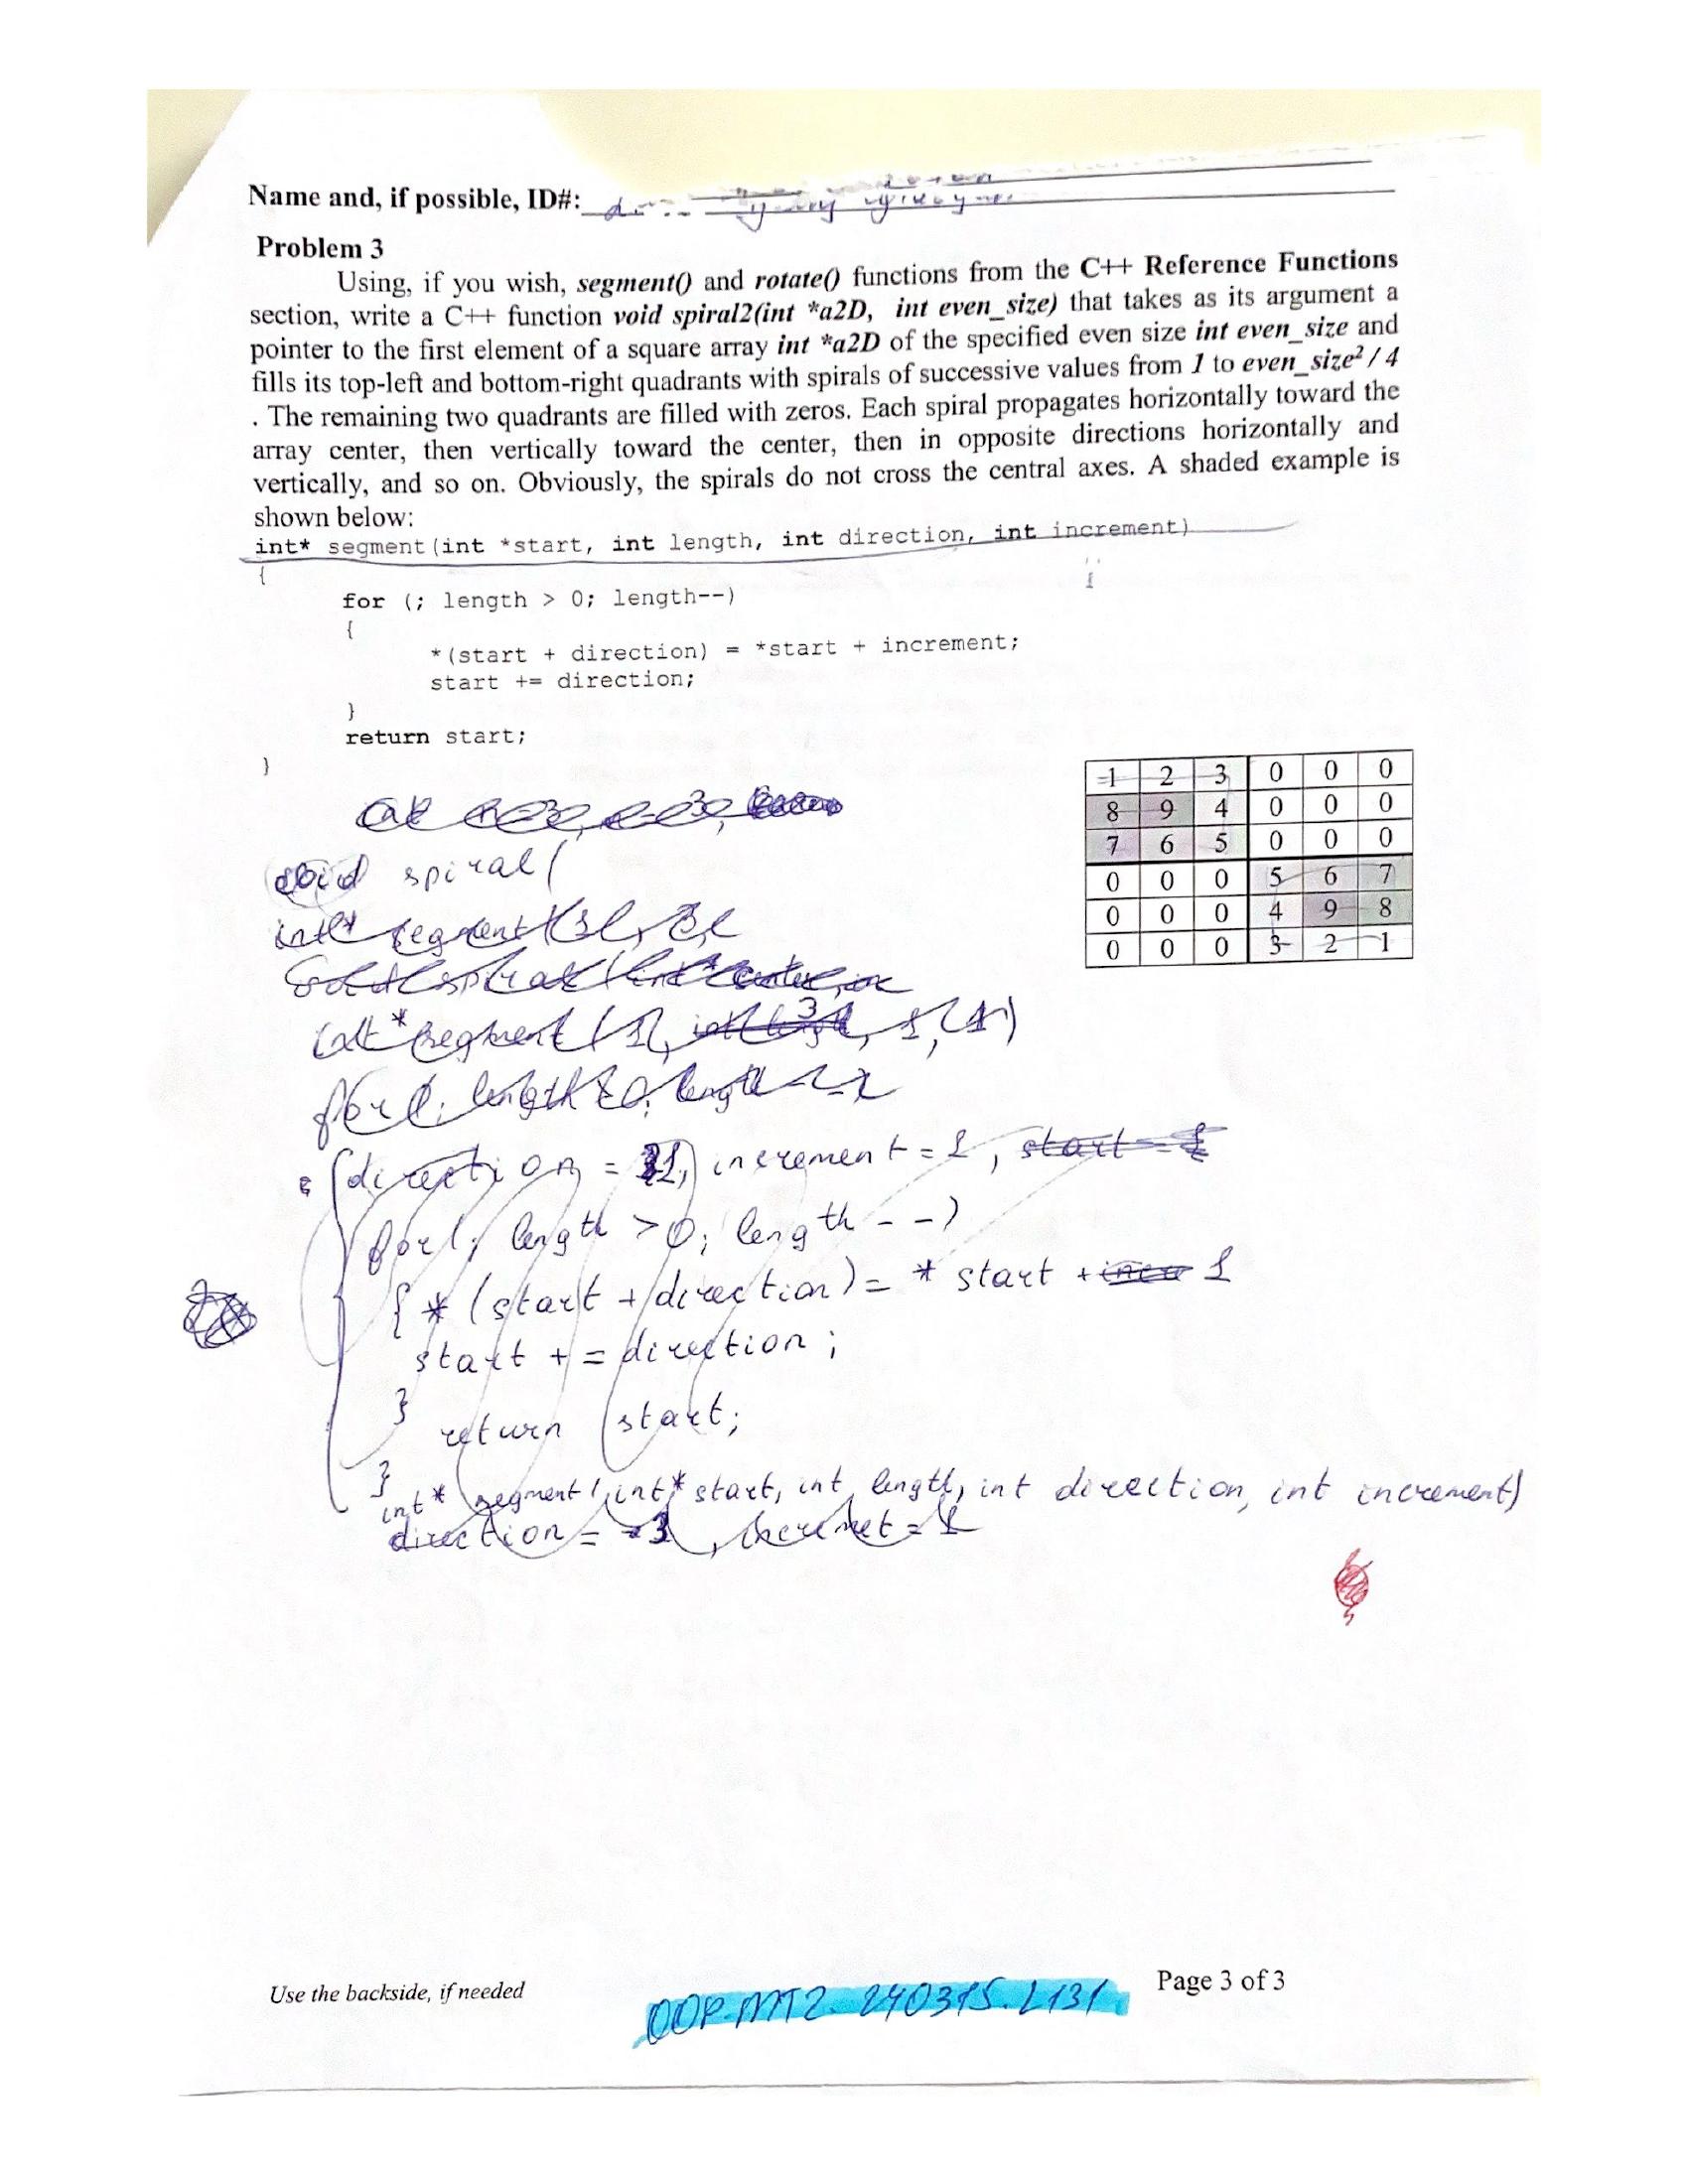 Name and, if possible, ID#:
Problem 3
Using, if you wish, segment() and rotate() functions from the C++ Reference Functions
section, write a C++ function void spiral2(int *a2D, int even_size) that takes as its argument a
pointer to the first element of a square array int *a2D of the specified even size int even_size and
fills its top-left and bottom-right quadrants with spirals of successive values from 1 to even_size² / 4
. The remaining two quadrants are filled with zeros. Each spiral propagates horizontally toward the
array center, then vertically toward the center, then in opposite directions horizontally and
vertically, and so on. Obviously, the spirals do not cross the central axes. A shaded example is
shown below:
int* segment(int *start, int length, int direction, int increment)
{
for (; length > 0; length--)
{
*(start + direction) = *start + increment;
start += direction;
}
return start;
}
1 2 3 0 0 0
8 9 4 0 0 0
7 6 5 0 0 0
0 0 0 5 6 7
0 0 0 4 9 8
0 0 0 3 2 1
void spiral(
int* segment(
int* segment (
for (; length > 0; length --
{ direction = 1, increment = 1, start = 1
for (; length > 0; length - - )
{ * (start + direction) = * start + 1
start + = direction ;
}
return start;
}
int* segment (int* start, int length, int direction, int increment)
direction = 3, incremet = 1
Use the backside, if needed
OOP.MT2.240315.L131
Page 3 of 3